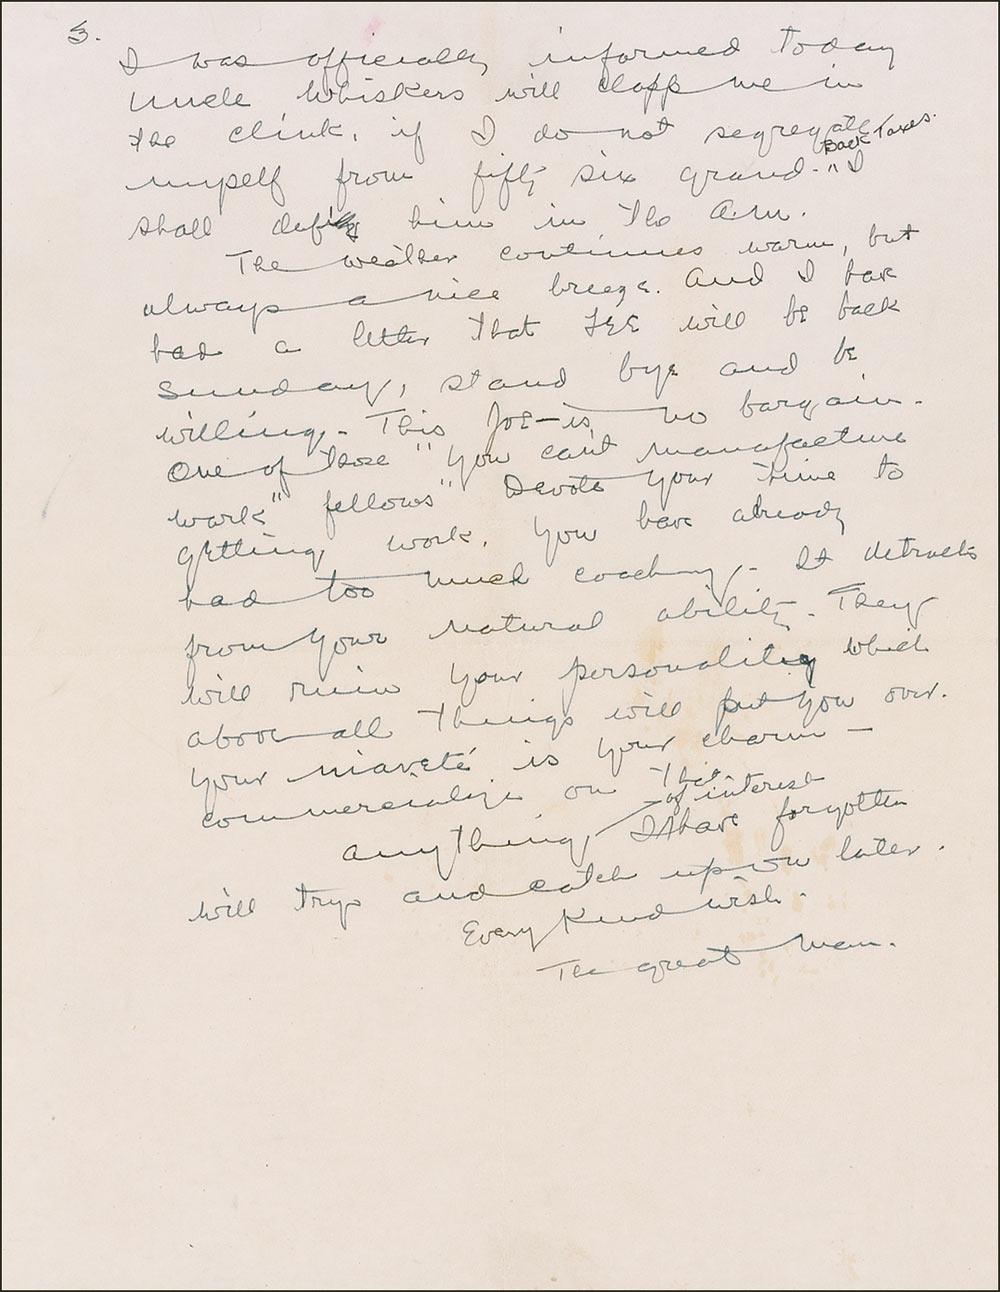 3.
I was officially informed today
Uncle Whiskers will clapp me in
the clink, if I do not segregate
Back Taxes.
myself from fifty six grand. "I
shall defy him in the A.M.
The weather continues warm, but
always a nice breeze. And I have
had a letter that LEE will be back
Sunday, stand bye and be
willing. This Joe - is no bargain.
One of those "you can't manufacture
work" fellows" Devote your time to
getting work. You have already
had too much coaching. It detracts
from your natural ability. They
will ruin your personality which
above all things will put you over.
Your niaveté is your charm —
commercialize on that
of interest
Anything I have forgotten
will try and catch up on later.
Every Kind wish.
The great Man.